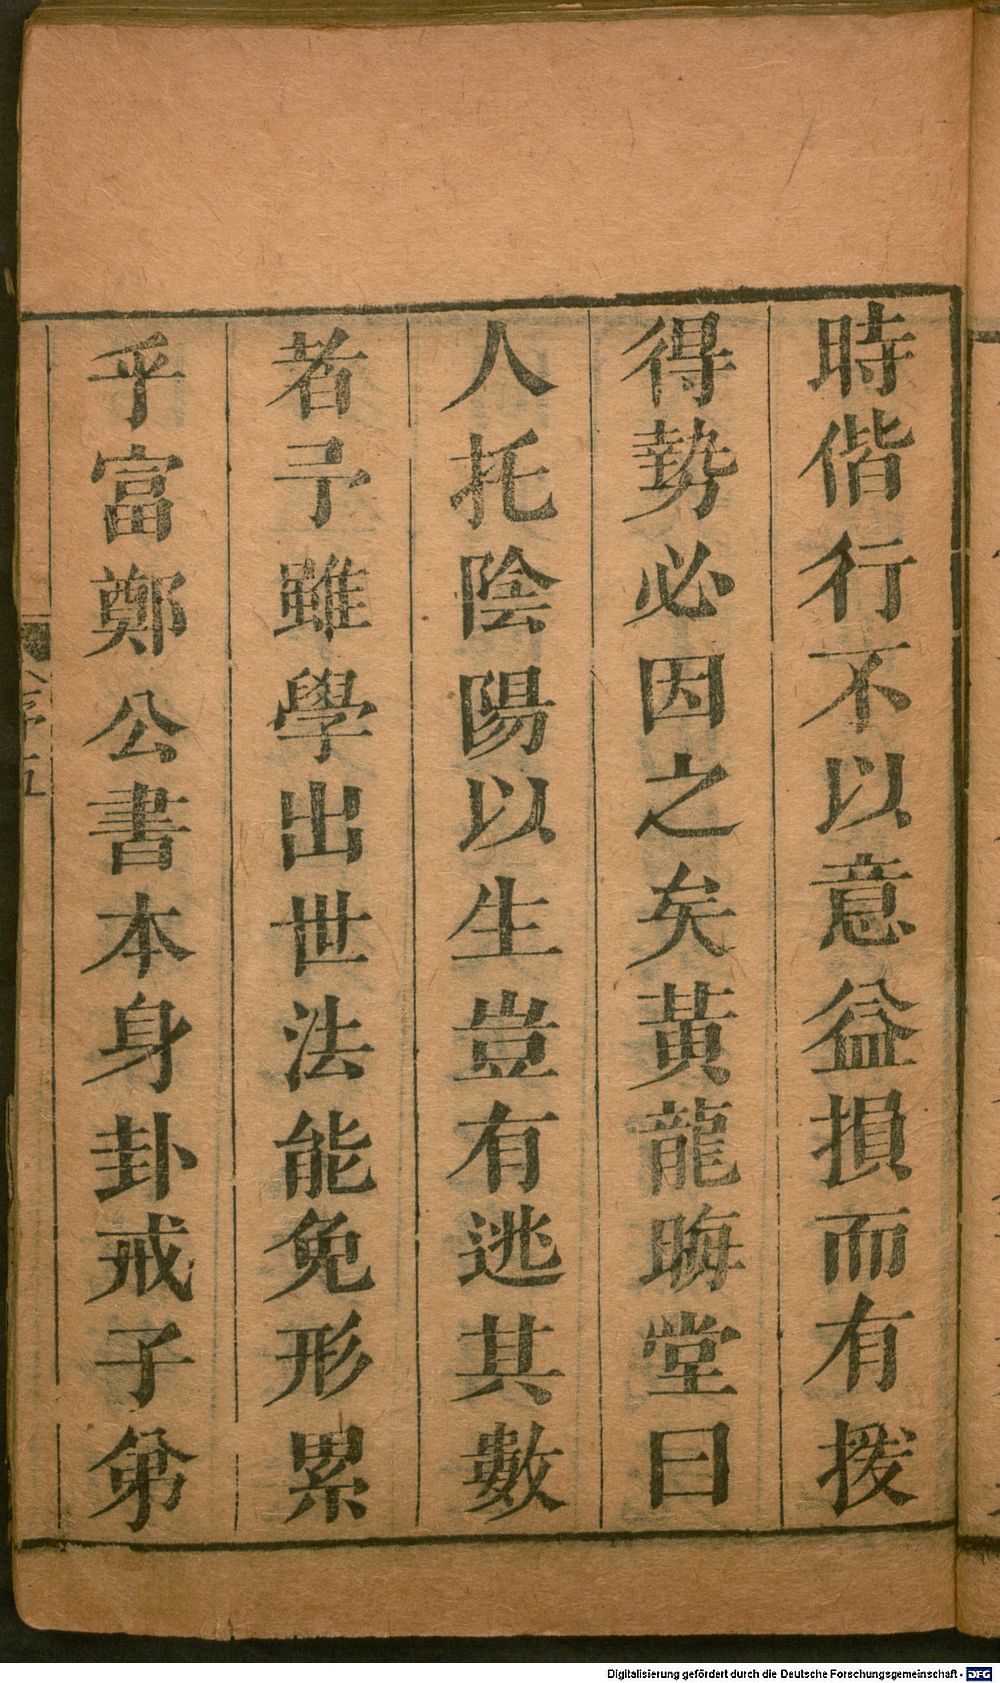 時偕行不以意益損而有援
得勢必因之矣黃龍晦堂曰
人托陰陽以生豈有逃其數
者予雖學出世法能免形累
乎富鄭公書本身卦戒子弟
序五
Digitalisierung gefördert durch die Deutsche Forschungsgemeinschaft - DFG